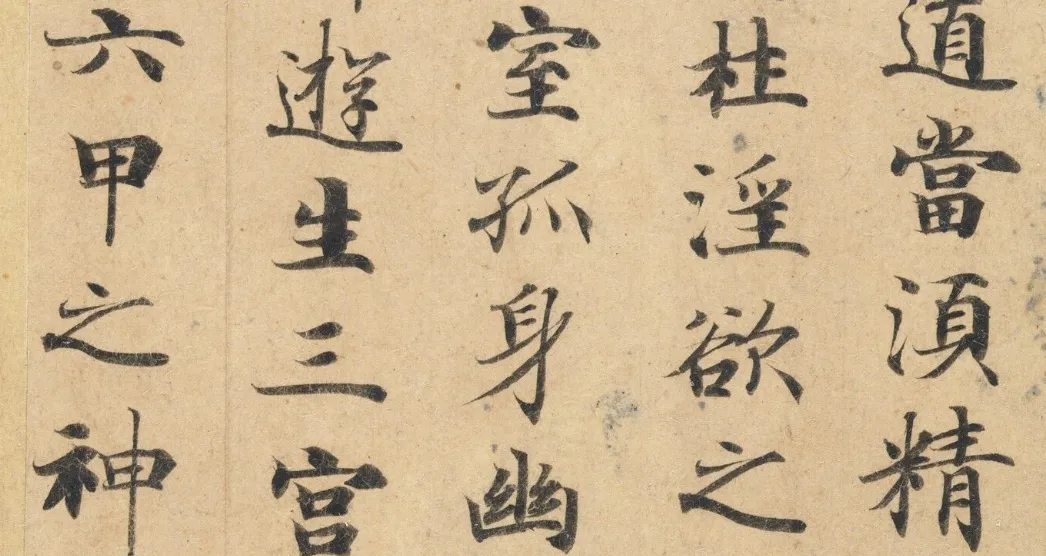 道當湏精
杜淫欲之
室孤身幽
遊生三宫
六甲之神